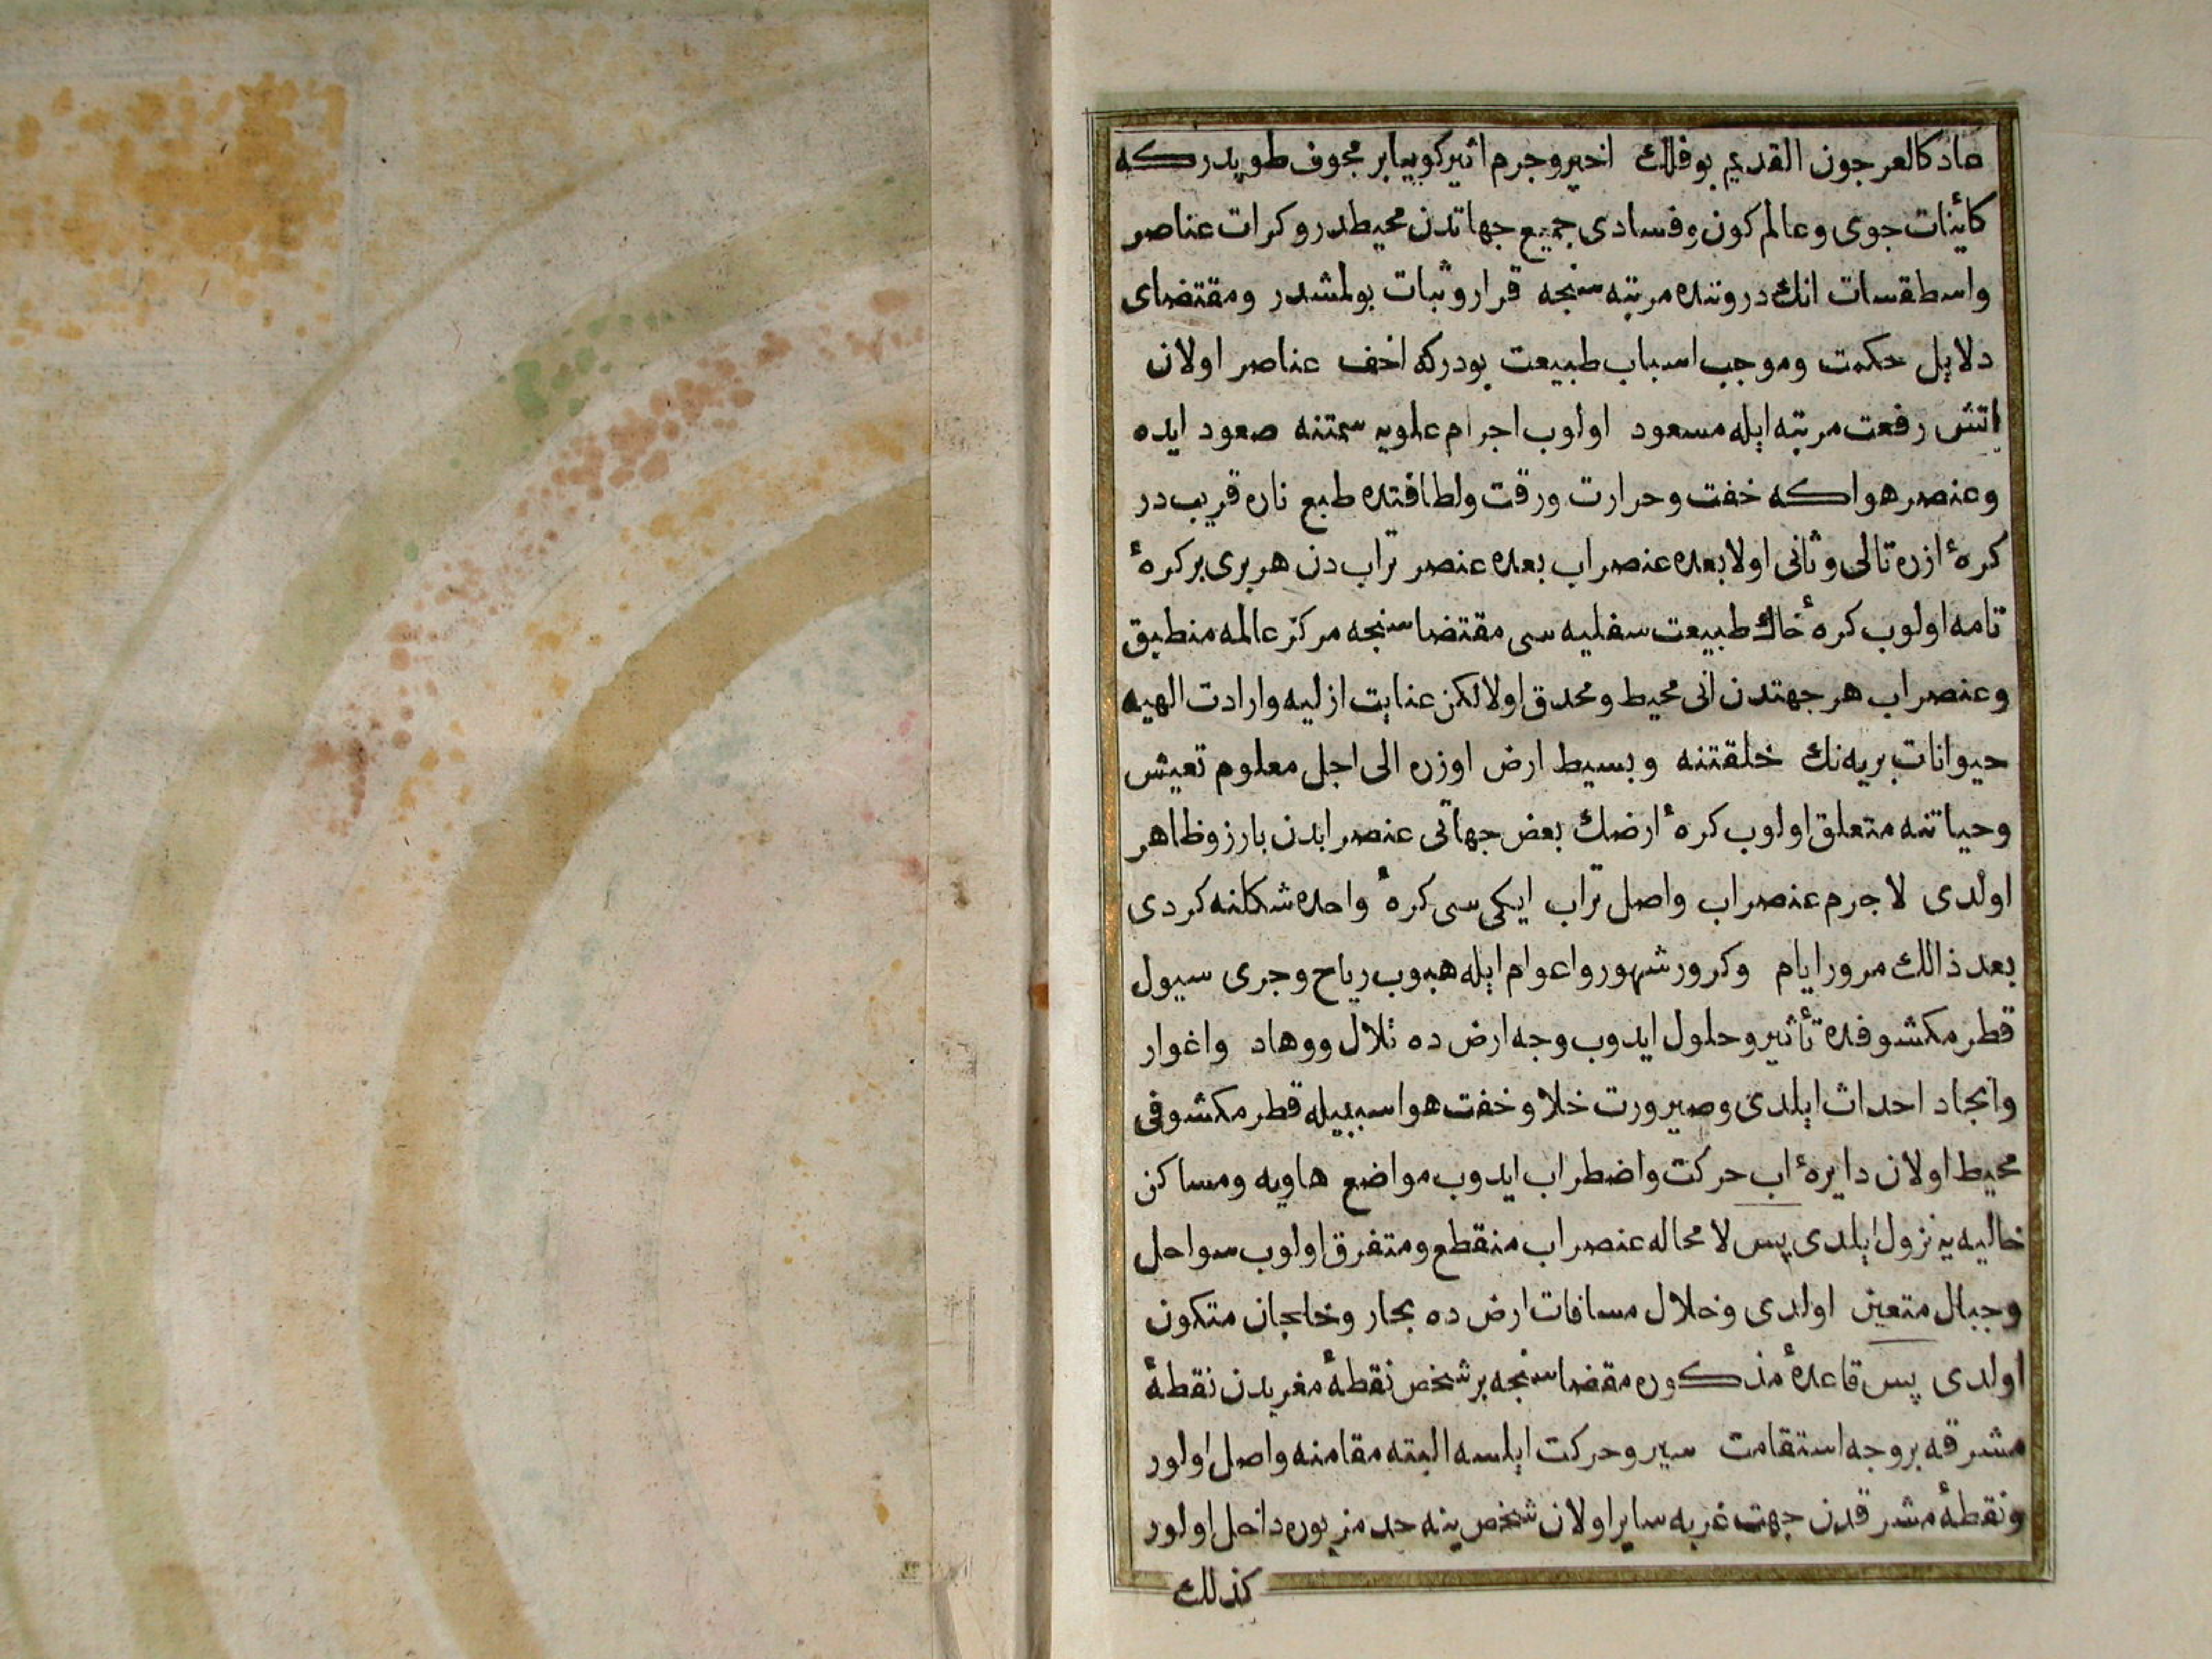 عاد كالعرجون القديم بو فلك اخير و جرم اثير كوييا بر مجوف طوپدر كه
كاينات جوى و عالم كون و فسادى جميع جهاتدن محيطدر و كرات عناصر
واسطقسات انك دروننده مرتبه سنجه قرار و ثبات بولمشدر و مقتضاى
دلايل حكمت و موجب اسباب طبيعت بودركه اخف عناصر اولان
اتش رفعت مرتبه ايله مسعود اولوب اجرام علويه سمتنه صعود ايده
و عنصر هوا كه خفت و حرارت و رقت و لطافتده طبع ناره قريب در
كرۀ ازره تالى و ثانى اولا بعده عنصر اب بعده عنصر تراب دن هر برى بر كرۀ
تامه اولوب كرۀ خاك طبيعت سفليه سى مقتضاسنجه مركز عالمه منطبق
و عنصر اب هر جهتدن انى محيط و محدق اولا لكن عنايت ازليه و ارادت الهيه
حيوانات بريه نك خلقتنه و بسيط ارض اوزره الى اجل معلوم تعيش
و حياتنه متعلق اولوب كرۀ ارضك بعض جهاتى عنصر ابدن بارز و ظاهر
اولدى لاجرم عنصر اب و اصل تراب ايكى سى كرۀ واحده شكلنه كردى
بعد ذالك مرور ايام و كرور شهور و اعوام ايله هبوب رياح و جرى سيول
قطر مكشوفده تأثير و حلول ايدوب وجه ارض ده تلال و وهاد و اغوار
وانجاد احداث ايلدى و صيرورت خلا و خفت هوا سببيله قطر مكشوفى
محيط اولان دايرۀ اب حركت و اضطراب ايدوب مواضع هاويه و مساكن
خاليه يه نزول ايلدى پس لامحاله عنصر اب منقطع و متفرق اولوب سواحل
و جبال متعين اولدى و خلال مسافات ارض ده بحار و خلجان متكون
اولدى پس قاعدۀ مذكوره مقضاسنجه بر شخص نقطۀ مغربدن نقطۀ
مشرقه بر وجه استقامت سير و حركت ايلسه البته مقامنه واصل اولور
و نقطۀ مشرقدن جهت غربه ساير اولان شخص ينه حد مزبوره داخل اولور
كذلك